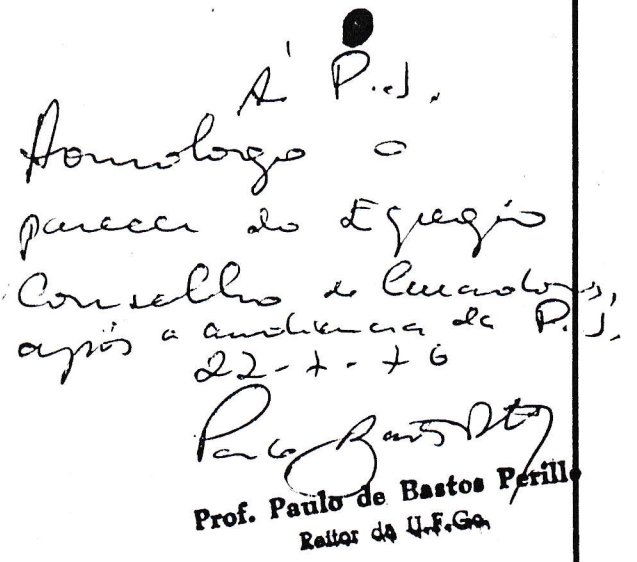 À P.J.
Homologo o
parecer do Egrégio
Conselho de Curadores,
após a audiência da P.J.
22-7-76
Prof. Paulo de Bastos Perillo
Reitor da U.F.Go.